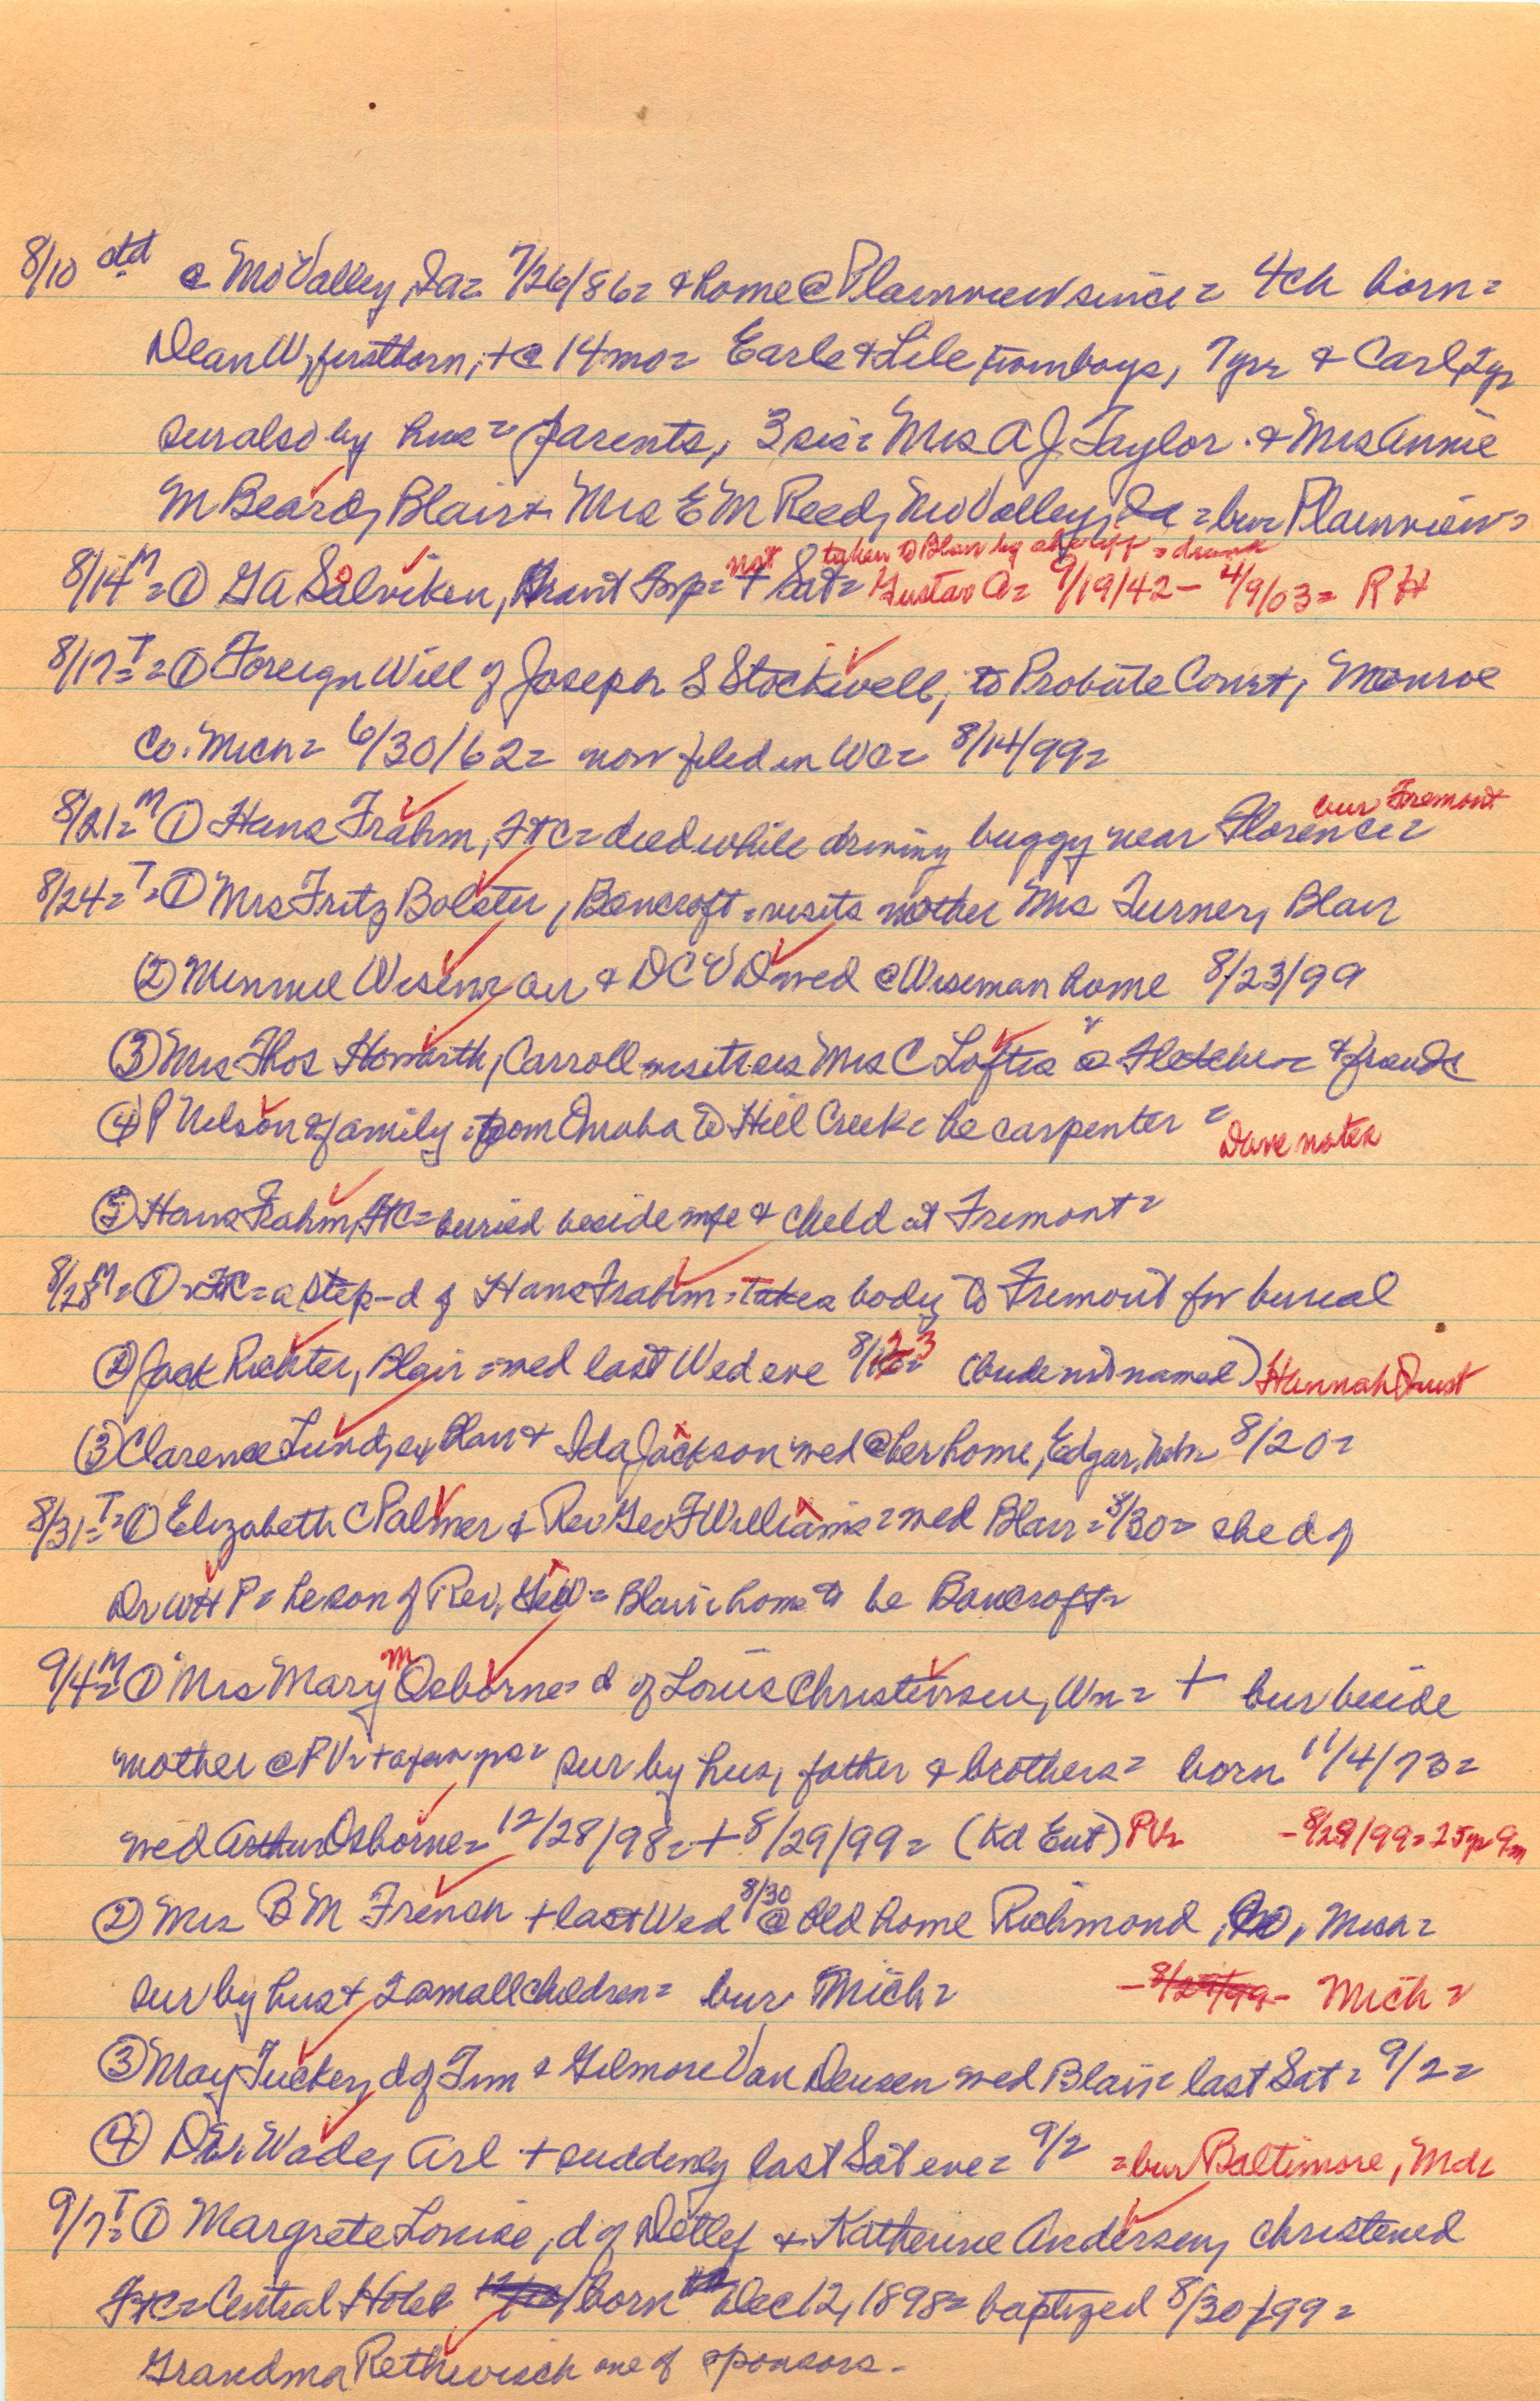 8/10 ctd @ Mo Valley, Ia = 7/26/86 = & home @ Plainview since = 4 ch born =
Dean W, firstborn, + @ 14 mo = Earle & Lile, twin boys, 7 yrs & Carl, 2 yr
sur also by hus = parents, 3 sis = Mrs A J Taylor & Mrs Annie
M Beard, Blair & Mrs E M Reed, Mo Valley, Ia = bur Plainview =
not taken to Blair by sheriff = drunk
8/14 = M ① G A Salviken, Grant Twp = + Sat = Gustav A = 9/19/42 - 4/9/03 = R H
8/17 = T = ① Foreign Will of Joseph S Stockwell, to Probate Court, Monroe
Co. Mich = 6/30/62 = now filed in WC = 8/14/99 =
bur Fremont
8/21 = M ① Hans Frahm, FtC = died while driving buggy near Florence =
8/24 = T = ① Mrs Fritz Bolster, Bancroft = visits mother Mrs Turner, Blair
② Minnie Wiseman & D C V D wed @ Wiseman home 8/23/99
③ Mrs Thos Howarth, Carroll visits sis Mrs C Loftis @ Fletcher = & friends
④ P Nelson & family = from Omaha to Hill Creek = he carpenter =
Dave notes
⑤ Hans Frahm, FtC = buried beside wife & child at Fremont =
8/28 M = ① FtC = a step-d of Hans Frahm = takes body to Fremont for burial
② Jack Richter, Blair = wed last Wed eve 8/23 (bride not named) Hannah Quist
③ Clarence Lund, ex Blair & Ida Jackson wed @ her home, Edgar, Neb = 8/20 =
8/31 = T = ① Elizabeth C Palmer & Rev Geo F Williams = wed Blair = 8/30 = she d of
Dr W H P = he son of Rev. Geo W = Blair = home to be Bancroft =
9/4 = M ① Mrs Mary M Osborne = d of Louis Christensen, Wn = + bur beside
mother @ PV = + a few yrs = sur by hus, father & brothers = born 11/4/73 =
wed Arthur Osborne = 12/28/98 = + 8/29/99 = (Kd Ent) PV = - 8/29/99 = 25 yr 9 m
② Mrs B M French + last Wed 8/30 @ old home Richmond, Co, Mich =
sur by hus & 2 small children = bur Mich = - 8/29/99 - Mich =
③ May Tucker, d of Tom & Gilmore Van Deusen wed Blair = last Sat = 9/2 =
④ Dr Wade, Arl + suddenly last Sat eve = 9/2 = bur Baltimore, Md =
9/7 = T ① Margrete Louise, d of Detlef & Katherine Andersen, christened
FtC = Central Hotel born Dec 12, 1898 = baptized 8/30/99 =
Grandma Rethwisch one of sponsors -